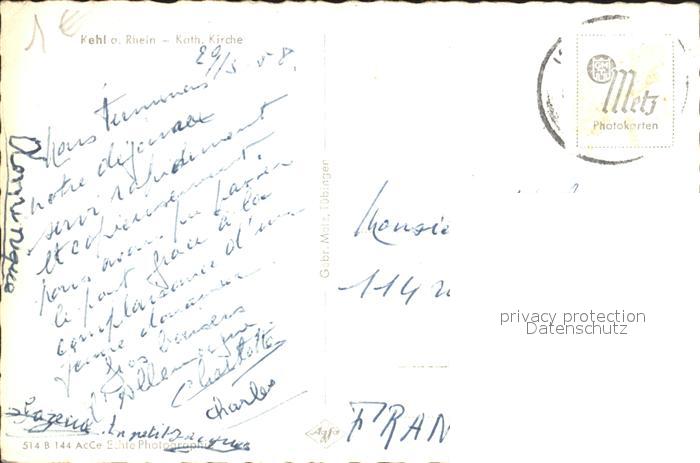 1 €
Kehl a. Rhein – Kath. Kirche
29/5.58.
Nous terminons
notre déjeuner
servi rapidement
et copieusement.
Nous avons pu passer
le pont grâce à la
complaisance d'un
jeune douanier.
Bons baisers
d'Allemagne.
Charlotte
Charles
Dominique
un petit Jacques
514 B 144 AcCe Echte Photographie
Gebr. Metz, Tübingen
Metz
Photokarten
Monsie
114
FRAN
Agfa
privacy protection
Datenschutz